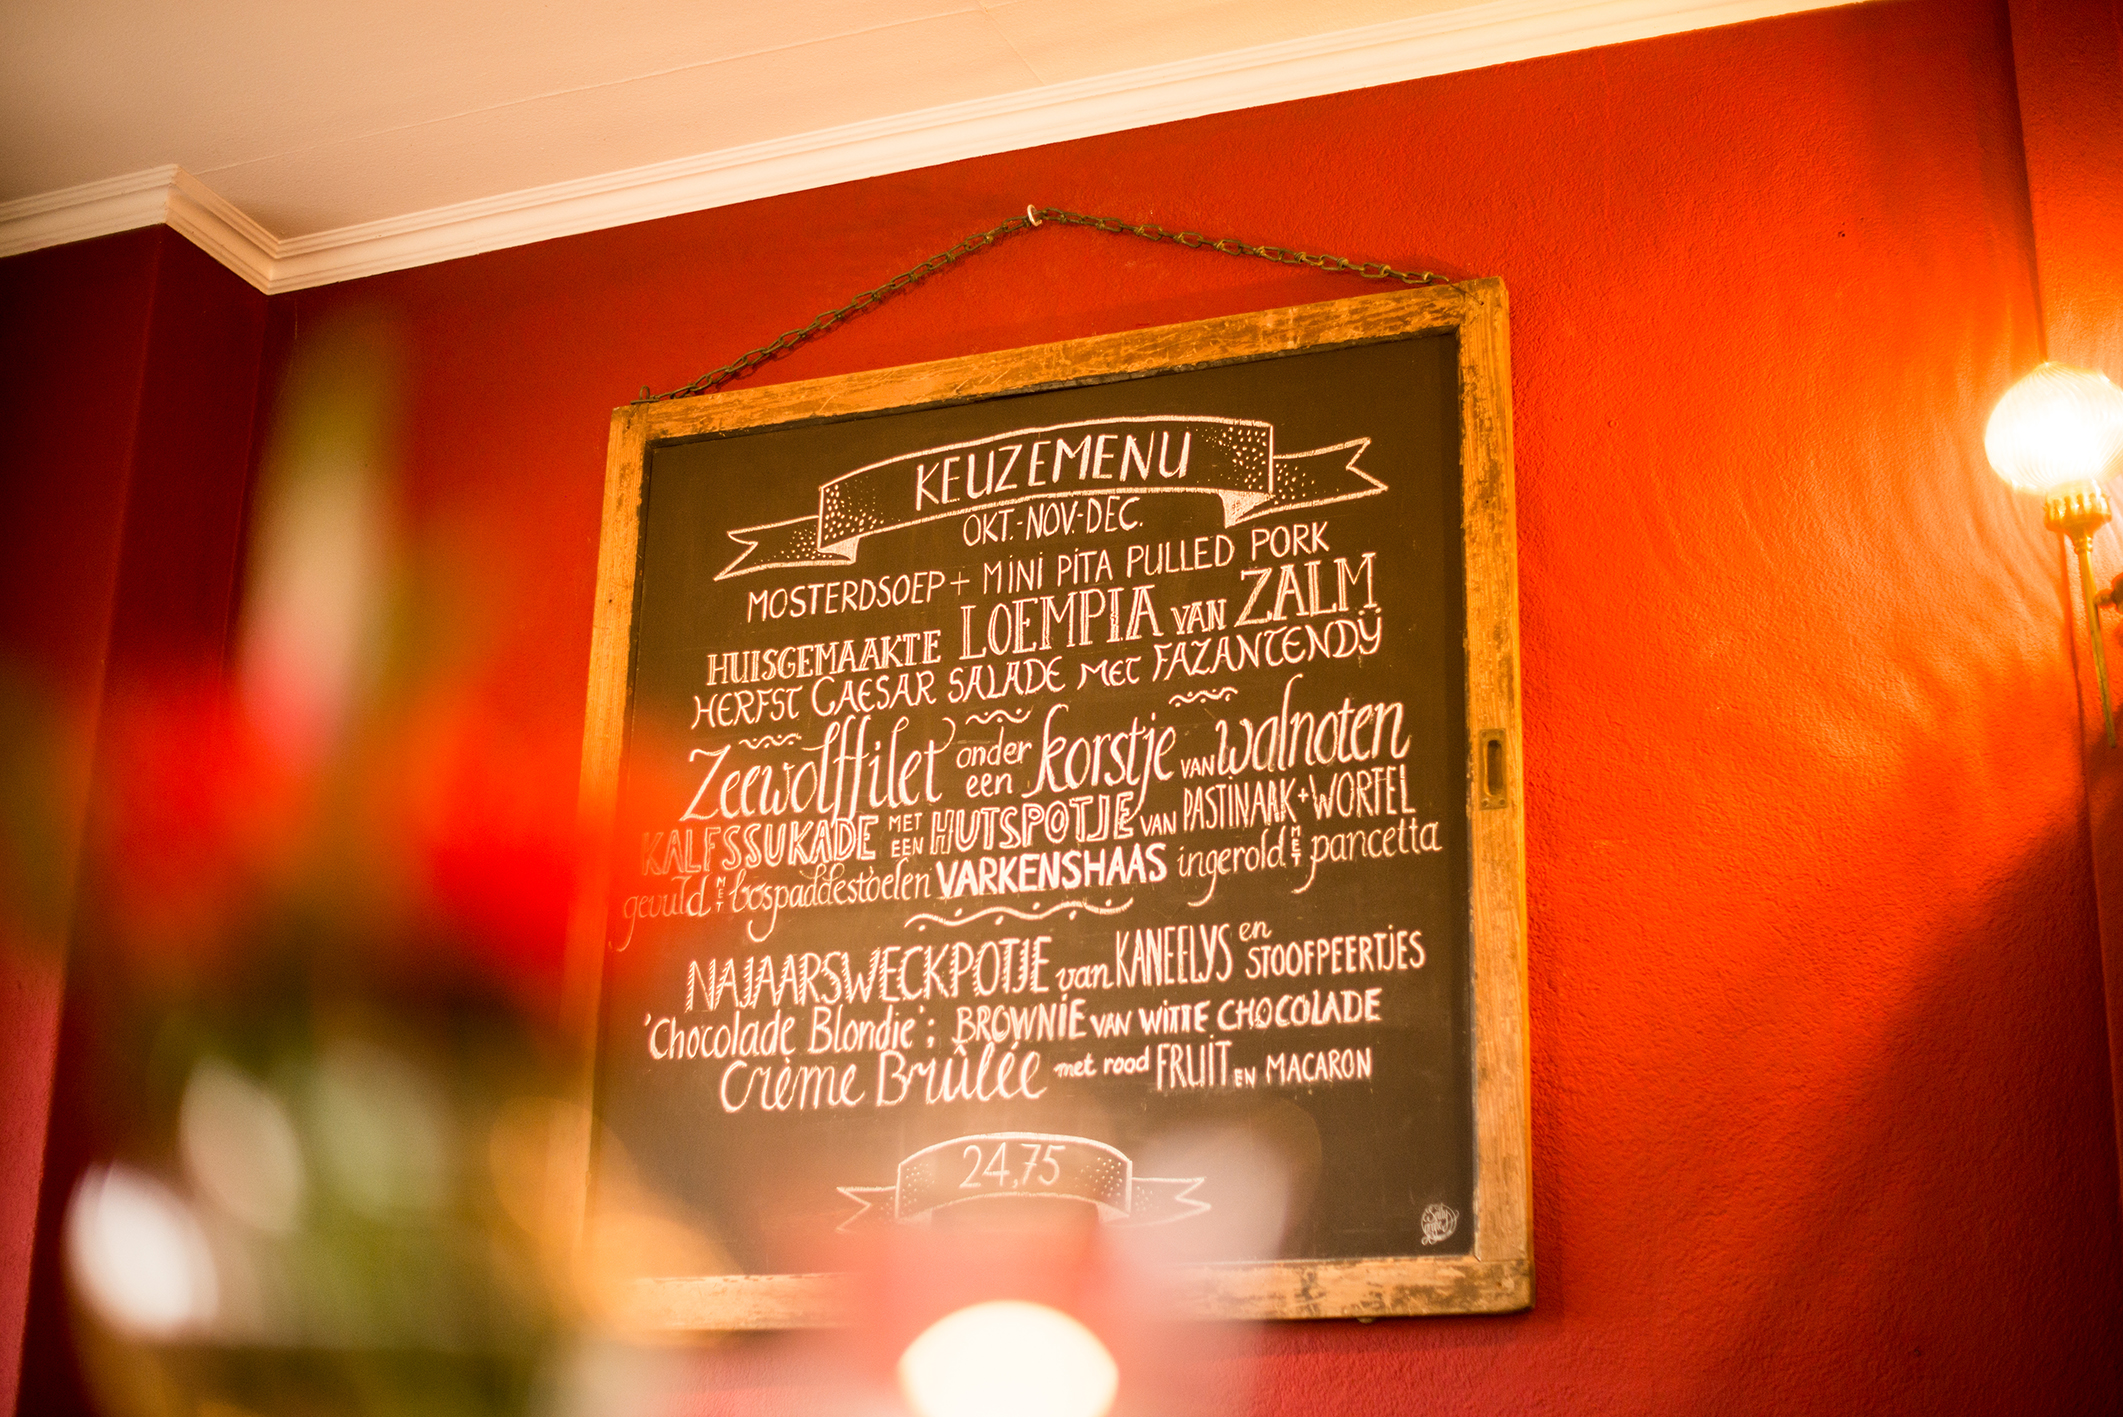 KEUZEMENU
OKT.-NOV.-DEC.
MOSTERDSOEP + MINI PITA PULLED PORK
HUISGEMAAKTE LOEMPIA VAN ZALM
HERFST CAESAR SALADE MET FAZANTENDIJ
Zeewolffilet onder een korstje VAN walnoten
KALFSSUKADE MET EEN HUTSPOTJE VAN PASTINAAK + WORTEL
gevuld MET bospaddestoelen VARKENSHAAS ingerold MET pancetta
NAJAARSWECKPOTJE van KANEELIJS en STOOFPEERTJES
'Chocolade Blondie': BROWNIE VAN WITTE CHOCOLADE
Crème Brûlée met rood FRUIT EN MACARON
24,75